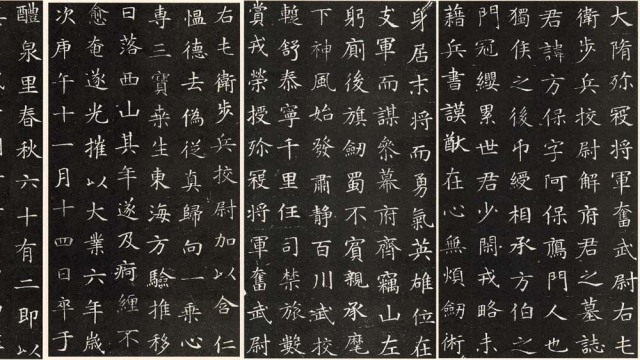 大隋殄寇將軍奮武尉右
衛步兵挍尉解府君之墓誌
君諱方保字阿保鴈門人也
獨侯之後巾綬相承方伯之
門冠纓累世君少閑戎略未
藉兵書謨猷在心無煩劒術
身居末將而勇氣英雄位在
支軍而謀叅幕府齊竊山左
躬廁後旗劒蜀不賓親承麾
下神風始發肅静百川武挍
蹔舒泰寧千里任司禁旅數
賞戎榮授殄寇將軍奮武尉
右衛步兵挍尉加以含仁
愠德去偽從真歸向一乘心
專三寶桒生東海方驗推移
日落西山其年遂及痾纏不
愈奄遂光摧以大業六年歲
次庚午十一月十四日卒于
醴泉里春秋六十有二即以